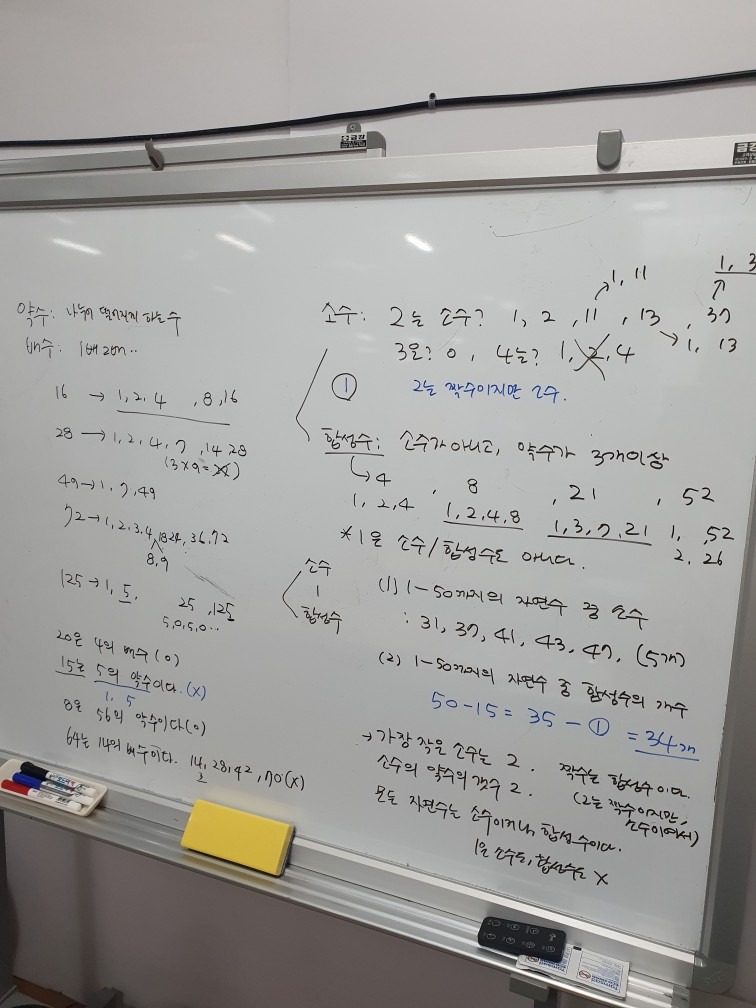 약수: 나누어 떨어지게 하는 수
배수: 1배 2배..
16 → 1, 2, 4 , 8, 16
28 → 1, 2, 4, 7, 14 28
(3×9=24)
49 → 1, 7, 49
72 → 1, 2, 3, 4, 18 24, 36, 72
8, 9
125 → 1, 5, 25, 125
5, 0, 5, 0 ..
20은 4의 배수 (0)
15는 5의 약수이다. (X)
1, 5
8은 56의 약수이다 (0)
64는 14의 배수이다. 14, 28, 42, 70 (X)
소수
합성수
1, 11
1, 3
소수: 2는 소수? 1, 2, 11, 13, 37
3은? 0, 4는? 1, 2, 4
1, 13
① 2는 짝수이지만 소수.
합성수: 소수가 아니고, 약수가 3개이상
4, 8, 21, 52
1, 2, 4 1, 2, 4, 8 1, 3, 7, 21 1, , 52
2, 26
*1은 소수/합성수도 아니다.
(1) 1-50까지의 자연수 중 소수
: 31, 37, 41, 43, 47, (5개)
(2) 1-50까지의 자연수 중 합성수의 개수
50-15 = 35 - ① = 34개
→ 가장 작은 소수는 2.
소수의 약수의 갯수 2.
짝수는 합성수이다.
(2는 짝수이지만, 소수이여서)
모든 자연수는 소수이거나, 합성수이다.
1은 소수도, 합성수도 X